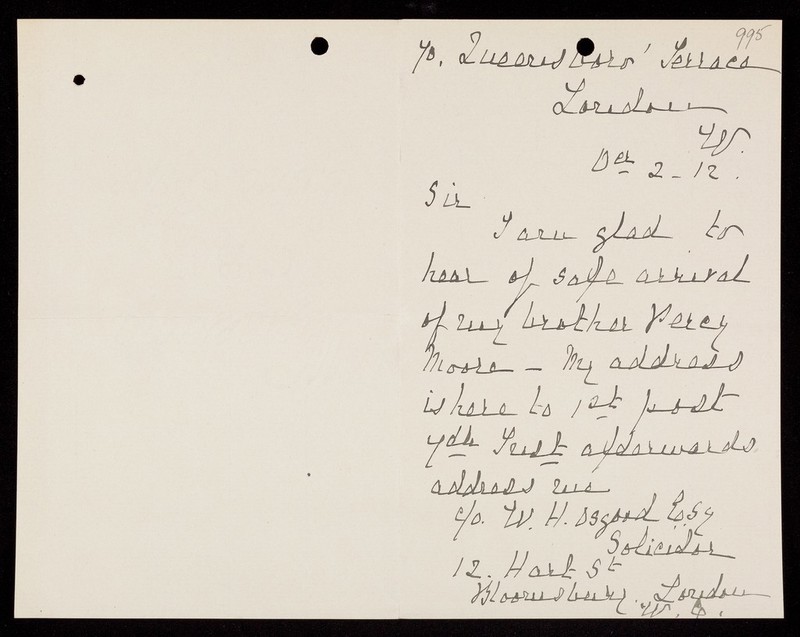 995
70, Queensboro' Terrace
London
W.
Dec 2 - 12.
Sir
I am glad to
hear of safe arrival
of my brother Percy
Moore - My address
is here to 1st post
7th Inst afterwards
address me
c/o. W. H. Osgood Esqy
Solicitor
12. Hart St
Bloomsbury. London
W. C.